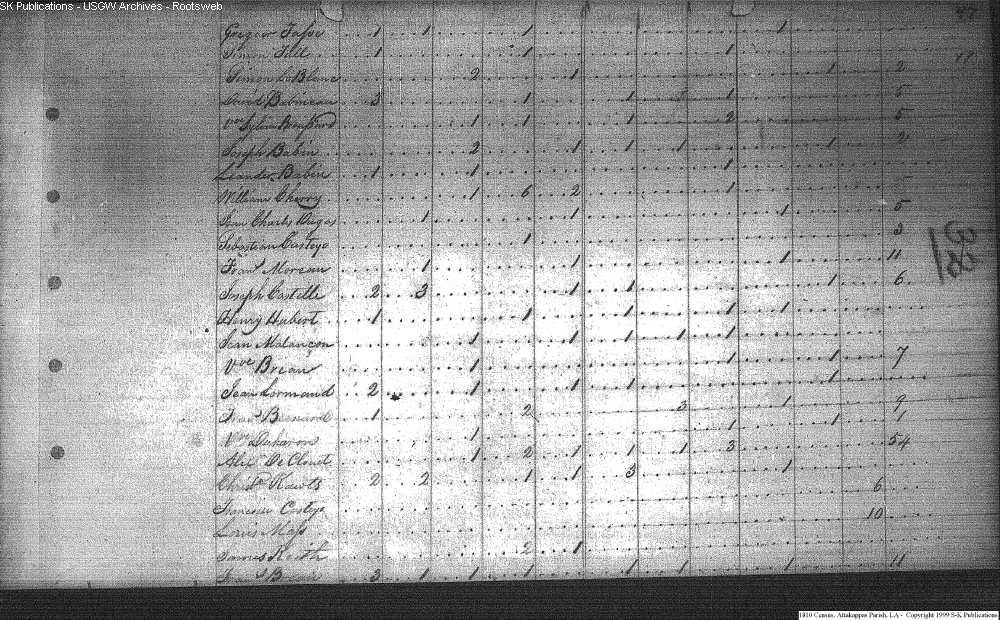 SK Publications - USGW Archives - Rootsweb
47
Simon LeBlanc 2 1 1 2
David Babineau 3 1 1 1 1 5
Vve Sylvain Broussard 1 1 1 2 5
Joseph Babin 2 1 1 1 1 2
Leander Babin 1 1 1
William Cherry 1 6 2 1
Jean Charles Dugas 1 1 1 5
Sebastian Casteyo 1 3
Frans Moreau 1 1 1 11
Joseph Castille 2 3 1 1 1 6
Henry Hubert 1 1 1 1 1
Jean Malancon 1 1 1 1 1
Vve Breau 1 1 1 7
Jean Lormand 2 1 1 1 1
Frans Bernard 1 2 3 1 9
Vve 1 1 1 1
Alexr De Clouet 1 2 1 1 1 3 54
2 2 1 1 3 1
Casteyo 6
Louis 10
James Keith 2 1
Frans Breau 3 1 1 1 1 1 1 11
1810 Census, Attakappas Parish, LA - Copyright 1999 S-K Publications